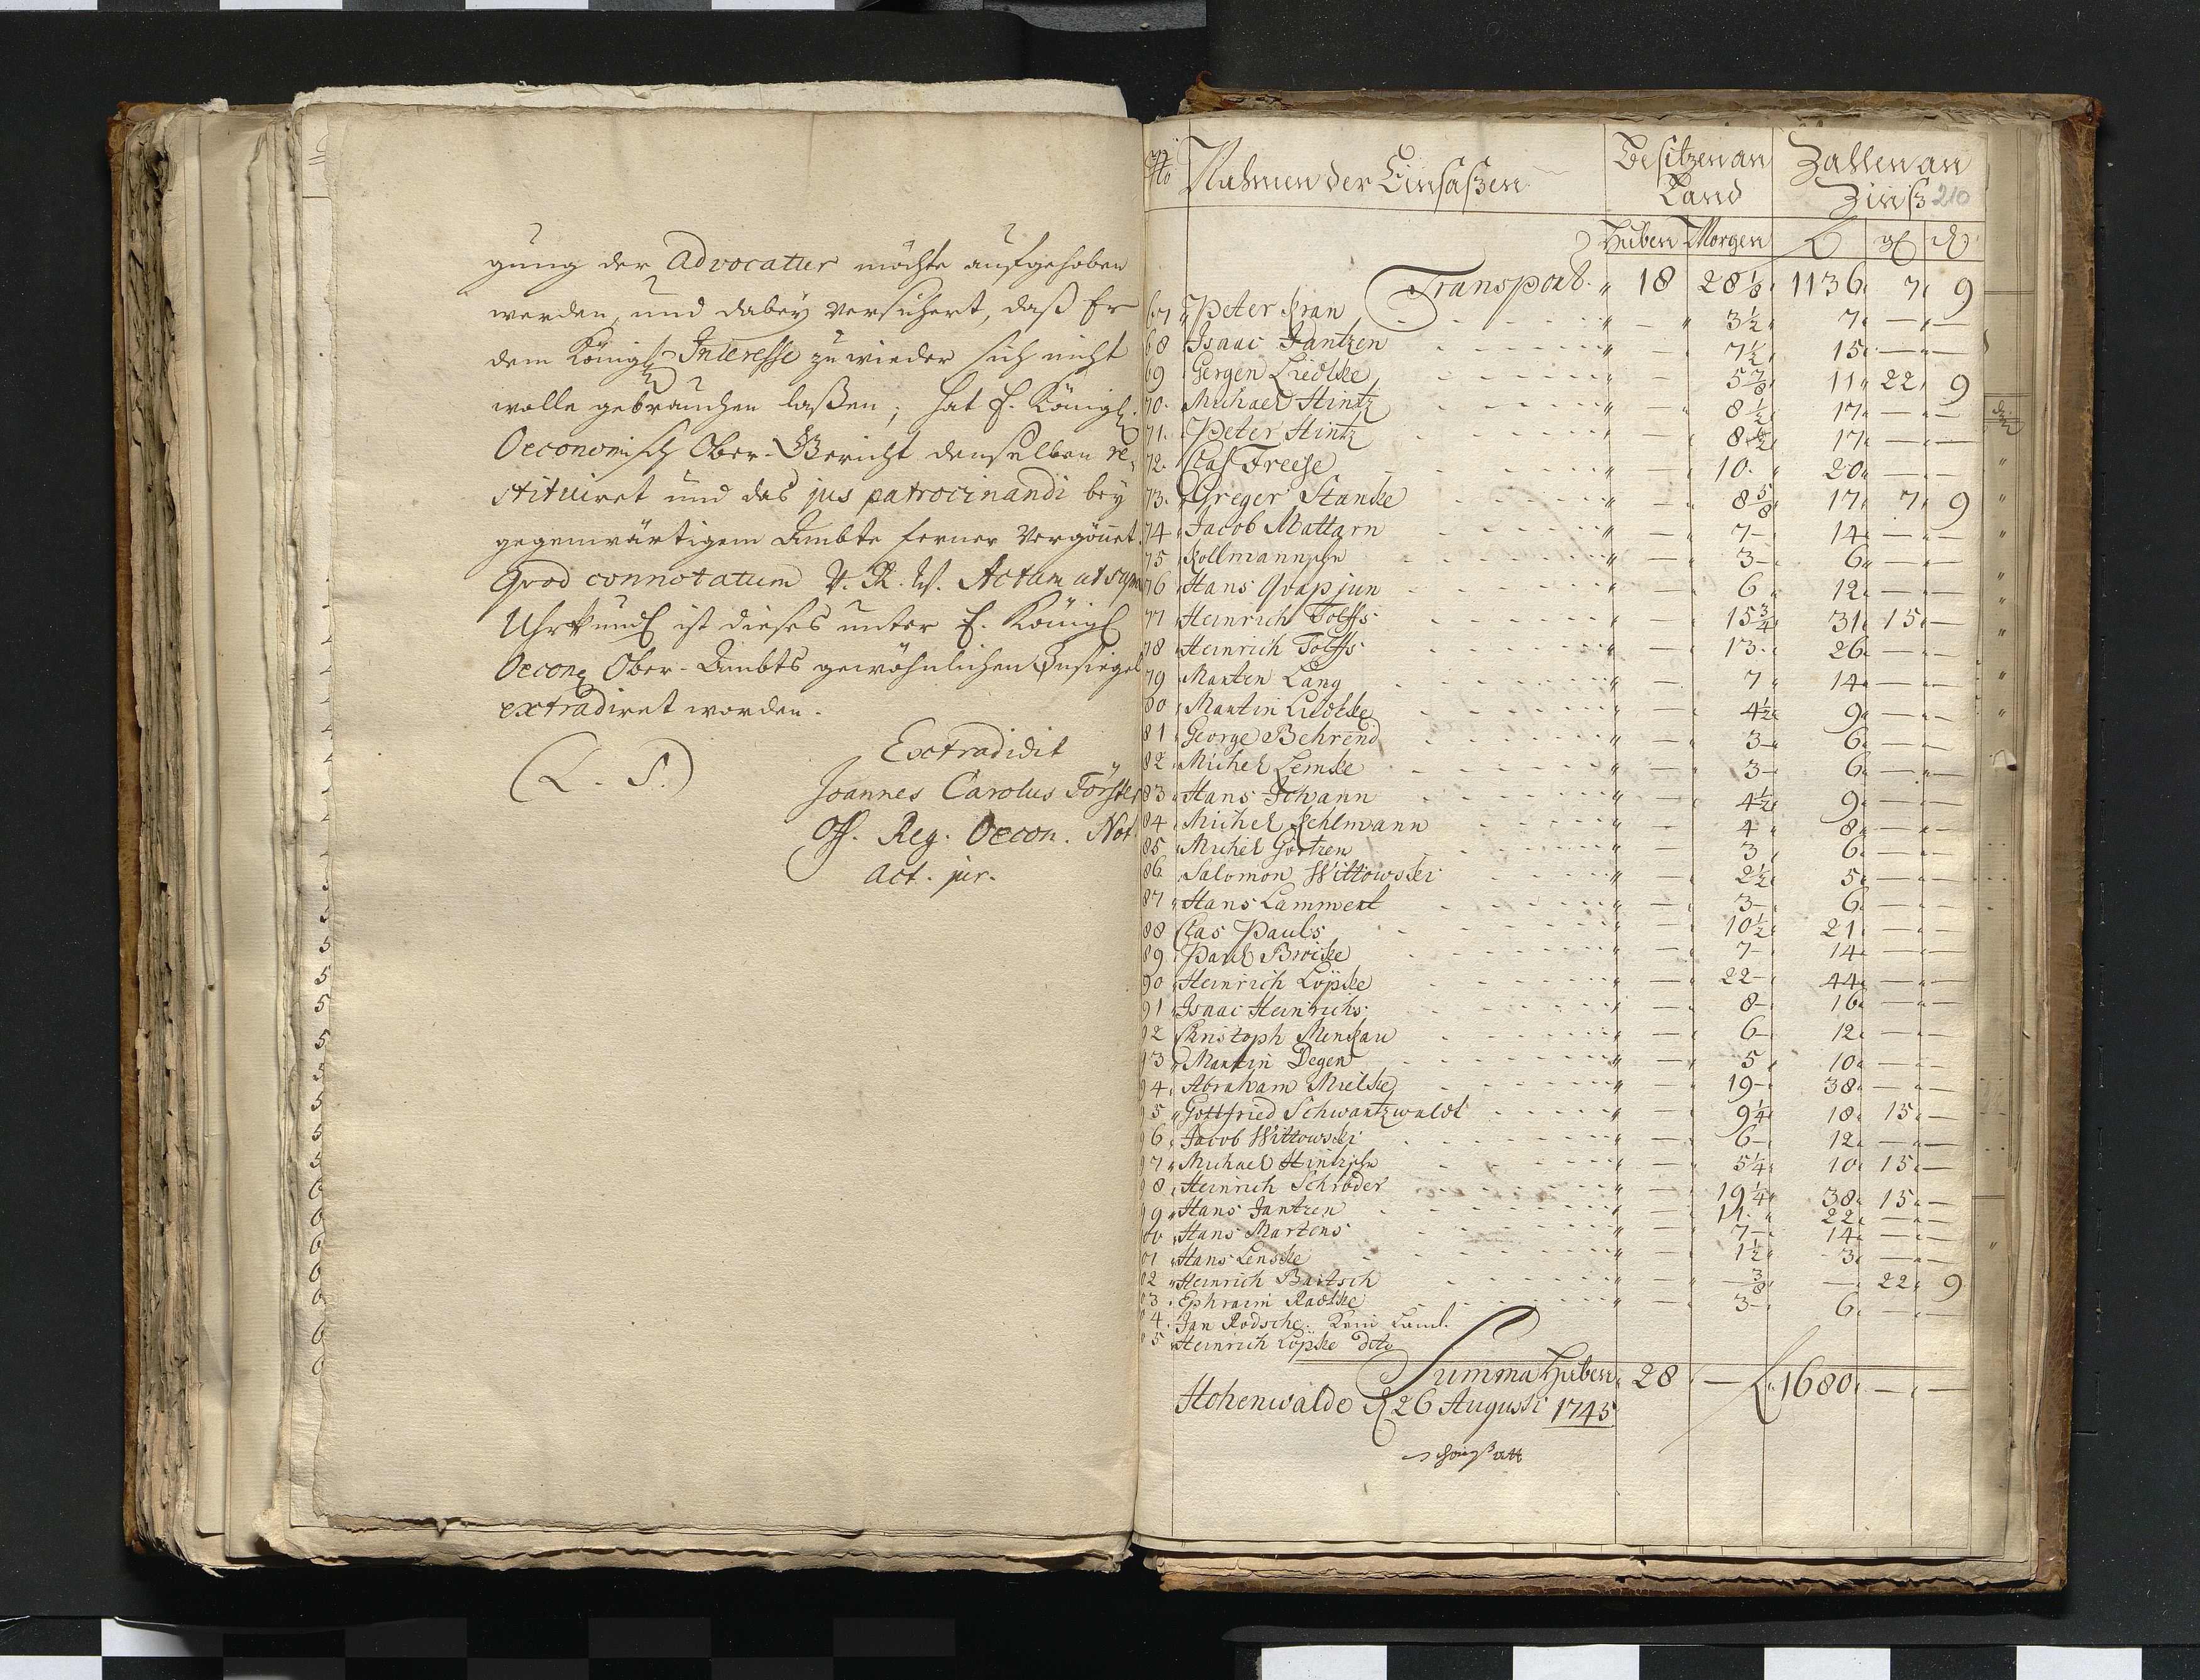 gung der Advocatur möchte aufgehoben
werden, und dabey versichert, daß Er
dem Königl. Interesse zuwieder sich nicht
wolle gebrauchen laßen; hat E. Königl.
Oeconomisch Ober-Gericht denselben re,
stituiret und das jus patrocinandi bey
gegenwärtigem Ambte ferner vergönnet.
Quod connotatum V. R. W. Actum ut supra
Uhrkundl ist dieses unter E. Königl
Oecon. Ober-Ambts gewöhnlichen Insiegel
extradiret worden.
Extradidit
(L. S.)
Joannes Carolus Förster
Off. Reg. Oecon. Not.
Act. jur.
No Nahmen der Einsaßen Besitzen an Land Zahlen an Zinß 210
Huben Morgen f. gl. d.
Transport. 18 28 1/8 1136 7 9
67 Peter Kran — 3 1/2 7 — —
68 Isaac Jantzen — 7 1/2 15 — —
69 Gergen Liedtke — 5 7/8 11 22 9
70. Michael Hintz — 8 1/2 17 — —
71. Peter Hintz — 8 1/2 17 — —
72. Clas Freese 10 20 — —
73. Greger Stanke 8 5/8 17 7 9
74 Jacob Mattarn — 7 — 14 — —
75 Kollmannsche — 3 — 6 — —
76 Hans Quap jun — 6 12 — —
77 Heinrich Tolffs — 15 3/4 31 15 —
78 Heinrich Tolffs — 13 26 — —
79 Marten Lang — 7 14 — —
80 Martin Liedtke — 4 1/2 9 — —
81 George Behrend — 3 — 6 — —
82 Michel Lemke — 3 — 6 — —
83 Hans Johann — 4 1/2 9 — —
84 Michel Kehlmann — 4 8 — —
85 Michel Gortzen — 3 6 — —
86 Salomon Wittowski — 2 1/2 5 — —
87 Hans Lammert — 3 — 6 — —
88 Clas Pauls — 10 1/2 21 — —
89 Paul Broske — 7 — 14 — —
90 Heinrich Löpke — 22 — 44 — —
91 Isaac Heinrichs — 8 — 16 — —
92 Christoph Menkau — 6 — 12 — —
93 Martin Degen — 5 10 — —
94 Abraham Mielke — 19 — 38 — —
95 Gottfried Schwartzwaldt — 9 1/4 18 15 —
96 Jacob Wittowski — 6 — 12 — —
97 Michael Hintzsche — 5 1/4 10 15 —
98 Heinrich Schröder — 19 1/4 38 15 —
99 Hans Jantzen — 11 22 — —
00 Hans Martens — 7 — 14 — —
01 Hans Lenske — 1 1/2 3 — —
02 Heinrich Bartsch — 3/8 — 22 9
03 Ephraim Radtke — 3 — 6 — —
04. Jan Rodsche. Kein Land.
05 Heinrich Löpke dito
Summa Huben 28 — f. 1680 — —
Hohenwalde d 26 Augusti 1745